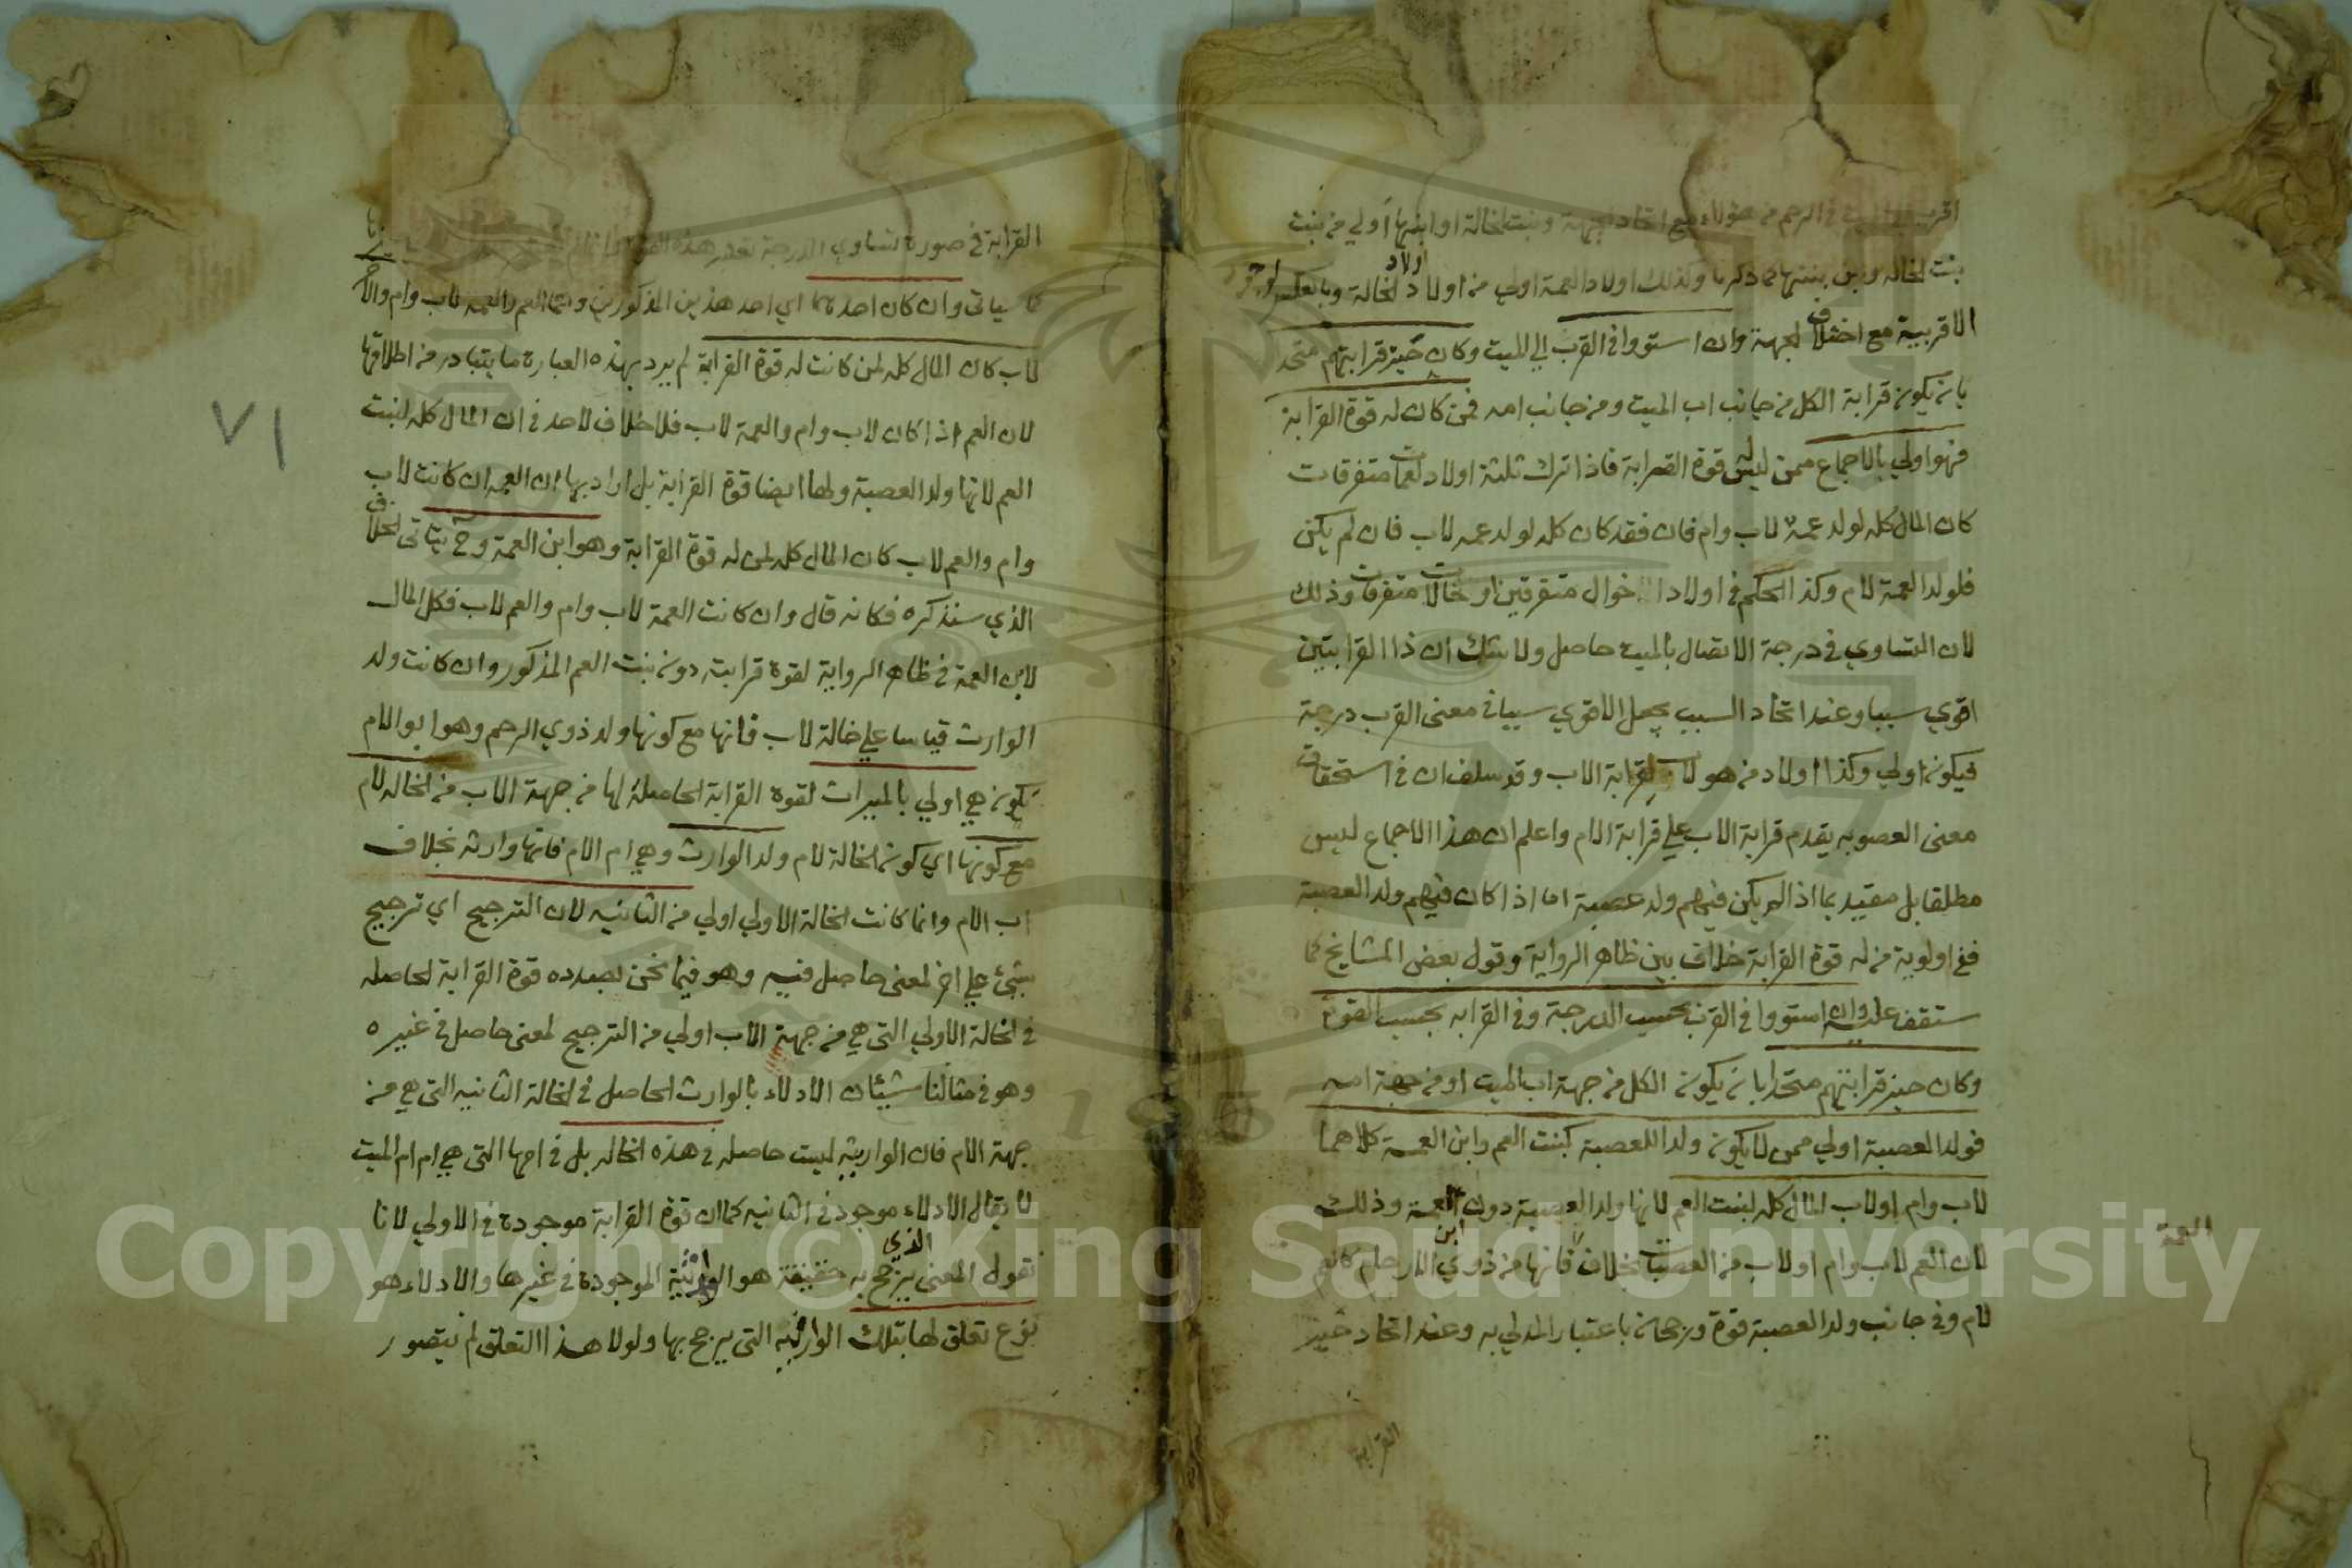 اقرب الى الميت في الرحم من هؤلاء مع اتحاد الجهة وبنت الخالة او ابنها اولي من بنت
بنت الخاله وابن بنتها لما ذكرنا وكذلك اولاد العمة اولي من اولاد اولاد الخالة وبالعكس لوجود
الاقربية مع اختلاف الجهة وان استووا في القرب الي الميت وكان حيز قرابتهم متحد
بان يكون قرابة الكل من جانب اب الميت ومن جانب امه فمن كان له قوة القرابة
فهو اولي بالاجماع ممن ليس له قوة القرابة فاذا ترك ثلثة اولاد عمات متفرقات
كان المال كله لولد عمة لاب وام فان فقد كان كله لولد عمه لاب فان لم يكن
فلولد العمة لام وكذا الحكم في اولاد اخوال متفرقين او خالات متفرقات وذلك
لان التساوي في درجة الاتصال بالميت حاصل ولا شك ان ذا القرابتين
اقوي سببا وعند اتحاد السبب يجعل الاقوي سببا في معنى القرب درجة
فيكون اولي وكذا اولاد من هو لاب لقرابة الاب وقد سلف ان في استحقاق
معنى العصوبه يقدم قرابة الاب علي قرابة الام واعلم ان هذا الاجماع ليس
مطلقا بل مقيد بما اذا لم يكن فيهم ولد عصبة اما اذا كان فيهم ولد العصبة
ففي اولوية من له قوة القرابة خلاف بين ظاهر الرواية وقول بعض المشايخ كما
ستقف عليه وان استووا في القرب بحسب الدرجة وفي القرابه بحسب القوة
وكان حيز قرابتهم متحدا بان يكون الكل من جهة اب الميت او من جهة امه
فولد العصبة اولي ممن لا يكون ولدا للعصبة كبنت العم وابن العمة كلاهما
لاب وام او لاب المال كله لبنت العم لانها ولد العصبة دون ابن العمة وذلك
لان العم لاب وام او لاب من العصبات بخلاف العمة فانها من ذوي الارحام كالعم
لام وفي جانب ولد العصبة قوة ورجحان باعتبار المدلي به وعند اتحاد حيز
القرابة
القرابة في صورة تساوي الدرجة
كما سياتي وان كان احدهما اي احد هذين المذكورين وهما العم والعمه لاب وام والآخر
لاب كان المال كله لمن كانت له قوة القرابة لم يرد بهذه العبارة ما يتبادر من اطلاقها
لان العم اذا كان لاب وام والعمة لاب فلا خلاف لاحد في ان المال كله لبنت
العم لانها ولد العصبة ولها ايضا قوة القرابة بل اراد بها ان العمه ان كانت لاب
وام والعم لاب كان المال كله لمن له قوة القرابة وهو ابن العمة وح يتاتى الخلاف
الذي سنذكره فكانه قال وان كانت العمة لاب وام والعم لاب فكل المال
لابن العمة في ظاهر الرواية لقوة قرابته دون بنت العم المذكور وان كانت ولد
الوارث قياسا علي خالة لاب فانها مع كونها ولد ذوي الرحم وهو ابو الام
تكون هي اولي بالميراث لقوة القرابة الحاصلة لها من جهة الاب من الخاله لام
مع كونها اي كون الخالة لام ولد الوارث وهي ام الام فانها وارثه بخلاف
اب الام وانما كانت الخالة الاولي اولي من الثانيه لان الترجيح اي ترجيح
شئ علي اخر لمعنى حاصل فيه وهو فيما نحن بصدده قوة القرابة الحاصله
في الخالة الاولي التي هي من جهة الاب اولي من الترجيح لمعنى حاصل في غيره
وهو في مثالنا شيئان الادلاء بالوارث الحاصل في الخالة الثانيه التي هي من
جهة الام فان الوارثيه ليست حاصله في هذه الخاله بل في امها التي هي ام ام الميت
لا يقال الادلاء موجود في الثانيه كما ان قوة القرابة موجودة في الاولي لانا
نقول المعنى الذي يرجح به حقيقة هو الوارثية الموجودة في غيرها والادلاء هو
نوع تعلق لها بتلك الوارثيه التي يرجح بها ولولا هذا التعلق لم يتصور
٧١
Copyright © King Saud University
1957